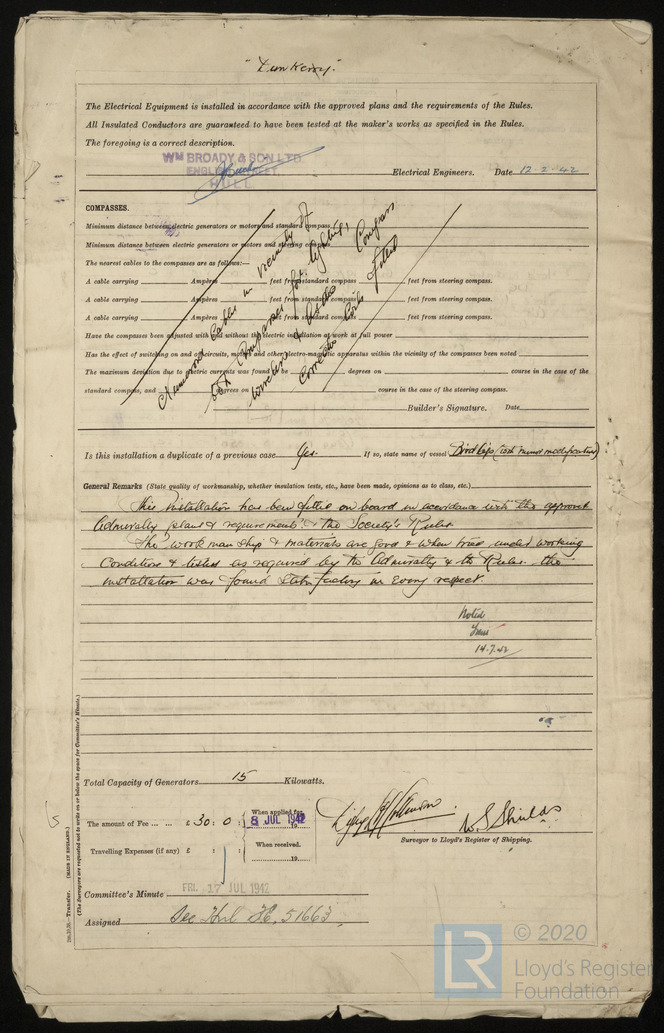 "Dunkerry".
The Electrical Equipment is installed in accordance with the approved plans and the requirements of the Rules.
All Insulated Conductors are guaranteed to have been tested at the maker's works as specified in the Rules.
The foregoing is a correct description.
WM BROADY & SON LTD
ENGLISH STREET
HULL
Electrical Engineers. Date 12.2.42
COMPASSES.
Minimum distance between electric generators or motors and standard compass
Minimum distance between electric generators or motors and steering compass
The nearest cables to the compasses are as follows:—
A cable carrying Ampères feet from standard compass feet from steering compass.
A cable carrying Ampères feet from standard compass feet from steering compass.
A cable carrying Ampères feet from standard compass feet from steering compass.
Have the compasses been adjusted with and without the electric installation at work at full power
Has the effect of switching on and off circuits, motors and other electro-magnetic apparatus within the vicinity of the compasses been noted
The maximum deviation due to electric currents was found to be degrees on course in the case of the
standard compass, and degrees on course in the case of the steering compass.
Numerous Cables in vicinity of
Compasses for lighting,
wireless & Asdic Compass
Corrector Coils fitted
Builder's Signature. Date
Is this installation a duplicate of a previous case Yes. If so, state name of vessel Birdlip (with minor modifications)
General Remarks (State quality of workmanship, whether insulation tests, etc., have been made, opinions as to class, etc.)
This installation has been fitted on board in accordance with the approved
Admiralty plans & requirements & the Society's Rules.
The workmanship & materials are good & when tried under working
Conditions & tested as required by the Admiralty & the Rules. the
installation was found satisfactory in every respect.
Noted
14.7.42
Total Capacity of Generators 15 Kilowatts.
The amount of Fee ... ... £ 30 : 0 :
When applied for,
8 JUL 1942
19
Travelling Expenses (if any) £ : :
When received.
19
W. S. Shields
Surveyor to Lloyd's Register of Shipping.
Committee's Minute FRI. 17 JUL 1942
Assigned See Hul FE. 51663
2m.10.38.—Transfer. (MADE IN ENGLAND.)
(The Surveyors are requested not to write on or below the space for Committee's Minute.)
LR
© 2020
Lloyd's Register
Foundation